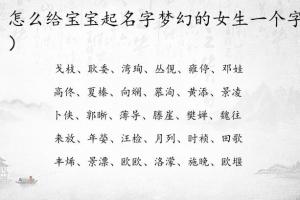 怎么给宝宝起名字梦幻的女生一个字
）
戈枝、耿委、湾珣、丛俔、雍停、邓娃
高佟、夏榛、向娴、慕洵、黄添、景凌
卜侠、郭晰、薄导、滕崖、樊婵、魏往
来放、年蓥、汪检、月列、时桢、田歌
丰烯、景漂、欧欧、洛濛、施晚、欧堰